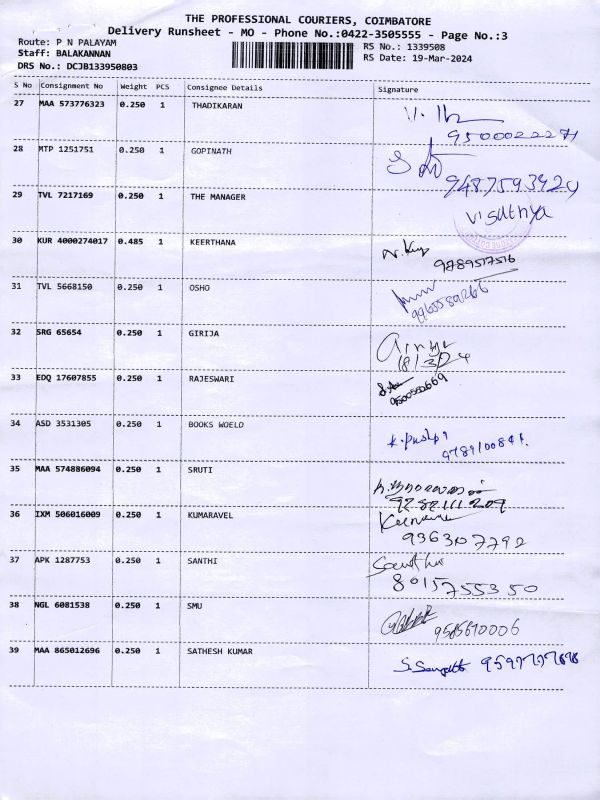 THE PROFESSIONAL COURIERS, COIMBATORE
Delivery Runsheet - MO - Phone No.:0422-3505555 - Page No.:3
Route: P N PALAYAM
RS No.: 1339508
Staff: BALAKANNAN
RS Date: 19-Mar-2024
DRS No.: DCJB133950803
S No Consignment No Weight PCS Consignee Details Signature
27 MAA 573776323 0.250 1 THADIKARAN
28 MTP 1251751 0.250 1 GOPINATH
9487593424
29 TVL 7217169 0.250 1 THE MANAGER
Visathya
30 KUR 4000274017 0.485 1 KEERTHANA
9789517516
31 TVL 5668150 0.250 1 OSHO
9965589266
32 SRG 65654 0.250 1 GIRIJA
33 EDQ 17607855 0.250 1 RAJESWARI
34 ASD 3531305 0.250 1 BOOKS WOELD
35 MAA 574886094 0.250 1 SRUTI
36 IXM 506016009 0.250 1 KUMARAVEL
9363077292
37 APK 1287753 0.250 1 SANTHI
8015755350
38 NGL 6081538 0.250 1 SMU
39 MAA 865012696 0.250 1 SATHESH KUMAR